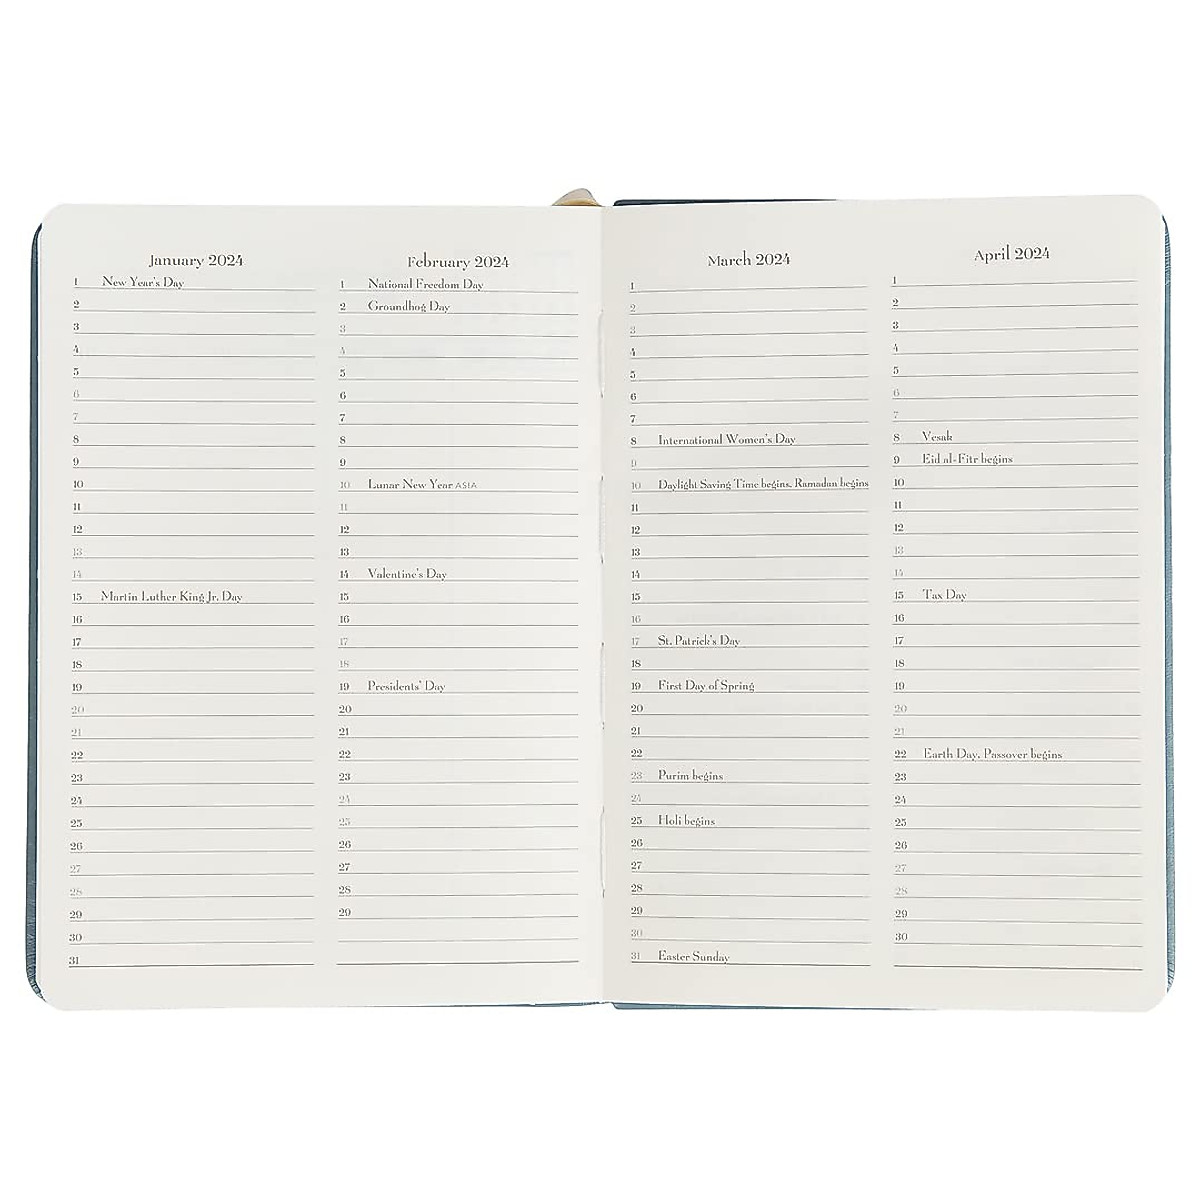 January 2024
1 New Year's Day
2
3
4
5
6
7
8
9
10
11
12
13
14
15 Martin Luther King Jr. Day
16
17
18
19
20
21
22
23
24
25
26
27
28
29
30
31
February 2024
1 National Freedom Day
2 Groundhog Day
3
4
5
6
7
8
9
10 Lunar New Year ASIA
11
12
13
14 Valentine's Day
15
16
17
18
19 Presidents' Day
20
21
22
23
24
25
26
27
28
29
March 2024
1
2
3
4
5
6
7
8 International Women's Day
9
10 Daylight Saving Time begins, Ramadan begins
11
12
13
14
15
16
17 St. Patrick's Day
18
19 First Day of Spring
20
21
22
23 Purim begins
24
25 Holi begins
26
27
28
29
30
31 Easter Sunday
April 2024
1
2
3
4
5
6
7
8 Vesak
9 Eid al-Fitr begins
10
11
12
13
14
15 Tax Day
16
17
18
19
20
21
22 Earth Day, Passover begins
23
24
25
26
27
28
29
30